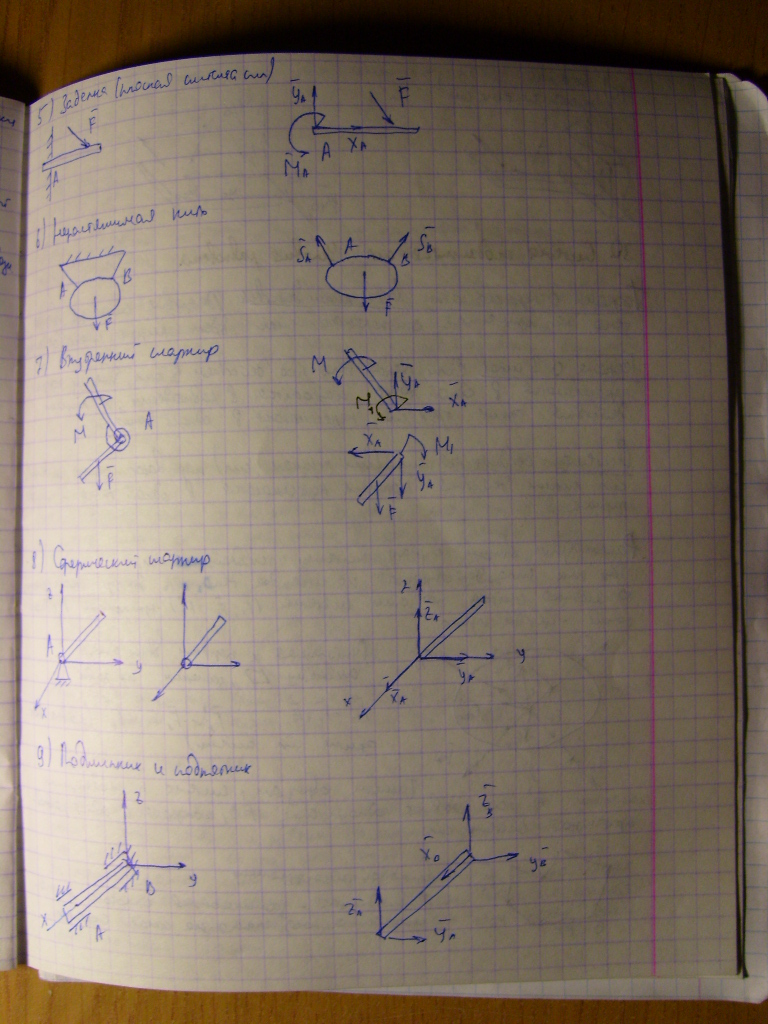 5) Заделка (плоская система сил)
F
A
Y̅A
F̅
M̅A
A
XA
6) Нерастяжимая нить
A
B
F
S̅A
A
B
S̅B
F̅
7) Внутренний шарнир
M
A
F̅
M
Y̅A
M1
X̅A
X̅A
M1
Y̅A
F
8) Сферический шарнир
z
A
y
x
z
z̅A
y
y̅A
x̅A
x
9) Подшипник и подпятник
z
y
B
x
A
z̅B
x̅B
y̅B
z̅A
y̅A